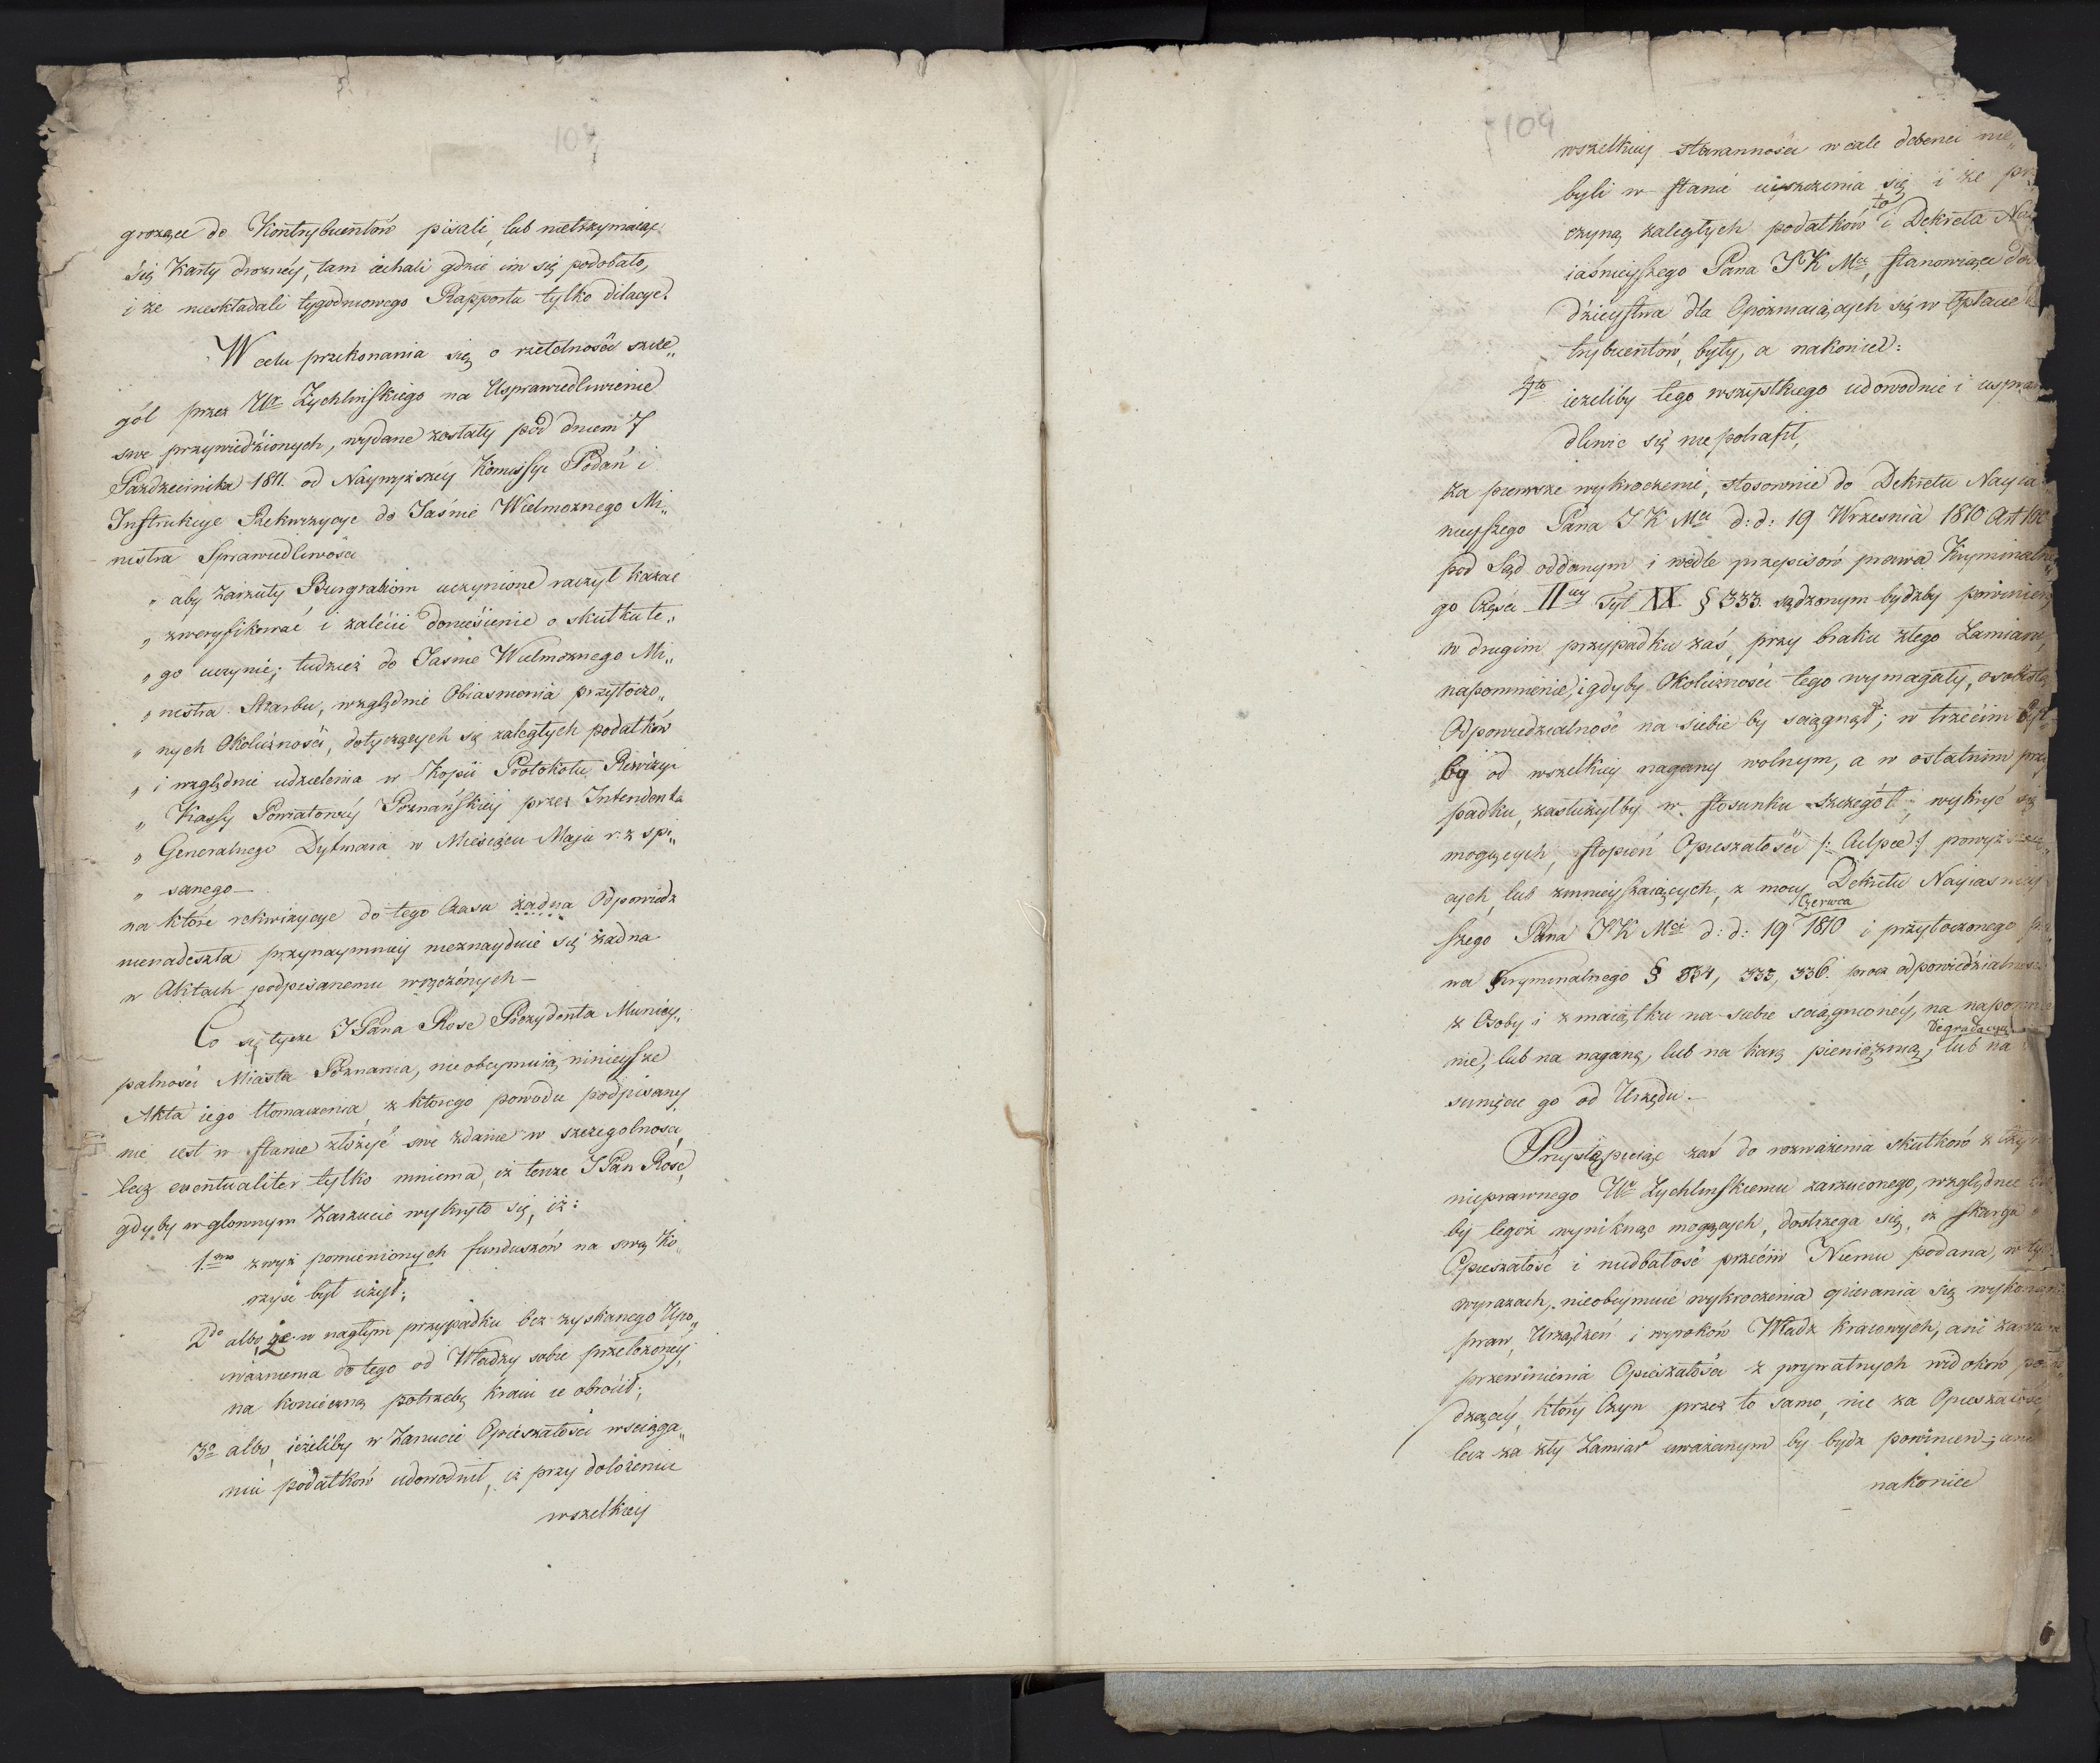 104
grożące do Kontrybuentów pisali, lub nietrzymaiąc
się Karty drożnéy, tam iechali gdzie im się podobało,
i że nieskładali tygodniowego Rapportu tylko dilacye.
W celu przekonania się o rzetelności szcze„
gół przez Ur Zychlinſkiego na Usprawiedliwienie
swe przywiedzionych, wydane zostały pod dniem 7
Pazdziernika 1811. od Naywyższéy Komiſsyi Podań i
Inſtrukcye Rekwizycye do Jaśnie Wielmożnego Mi„
nistra Sprawiedliwości
„ aby zarzuty Burgrabiom uczynione raczył kazać
„ zweryfikować i zalécić doniesienie o skutku te„
„ go uczynić; tudzież do Jaśnie Wielmożnego Mi„
„ nistra Skarbu, względnie Obiasnienia przytoczo„
„ nych Okoliczności, dotyczących się zaległych podatków
„ i względnie udzielenia w Kopii Protokołu Rewizyi
„ Kaſsy Powiatowéy Poznańſkiéy przez Intendenta
„ Generalnego Dytmara w Miesiącu Maju r: z spi„
„ sanego —
na któré rekwizycye do tego Czasu żadna Odpowiedz
nienadeszła przynaymniéy nieznayduie się żadna
w Aktach podpisanemu wręczónych —
Co się tycze J Pana Rose Prezydenta Municy„
palności Miasta Poznania, nie obeymuią ninieyſze
Akta iego tłomaczenia, z którego powodu podpisany
nie iest w ſtanie złożyć swe zdanie w szczegolności,
lecz eventualiter tylko mniema, iż tenże J Pan Rose,
gdyby w glownym Zarzucie wykryło się, iż:
1mo zwyż pomienionych funduszów na swą Ko„
rzyść był użył;
2do albo że w nagłym przypadku bez zyskanego Upo„
ważnienia do tego od Władzy sobie przełożonéy,
na konieczną potrzebę kraiu ie obrócił;
3o albo, ieżeliby w Zarzucie Opieszałości w ściąga„
niu podatków udowodnił, iż przy dołożeniu
wszelkiéy
104
wszelkiéy staranności wcale dobrneci nie„
byli w ſtanie uiszczenia się i że
to
czyną zaległych podatków i Dekreta
iaśnieyſzego Pana J K Mci, ſtanowiące
dzieyſtwa dla Opóźniaiących się w Opłacie
trybuentów, były, a nakoniec:
4to ieżeliby tego wszystkiego udowodnić i
dliwic się niepotrafił,
za pierwsze wykroczenie, stosownie do Dekretu
nieyſzego Pana J K Mci d: d: 19 Września 1810
pod Sąd oddanym i wedle przepisów prawa
go Części IIéy Tyt XX § 333. sądzonym bydźby powinien,
w drugim przypadku zaś, przy braku złego Zamiaru,
napomnienie, i gdyby Okoliczności tego wymagały, osobistą
Odpowiedzialność na siebie by sciągnął; w trzécim
by od wszelkiéy nagany wolnym, a w ostatnim
padku, zasłużyłby w ſtosunku szczegół, wykryć się
mogących, ſtopień Opieszałości /: Culpae :/
cych, lub zmnieyſzaiących, z mocy Dekretu
Czerwca
ſzego Pana J K Mci d: d: 19 1810 i przytoczonego
wa Kryminalnego § 334, 335, 336. prócz odpowiedzialności
z Osoby i z maiątku na siebie sciągnionéy, na
Degradacyą
nie, lub na naganę, lub na karę pieniężną, lub na
sunięcie go od Urzędu. —
Przystępuiąc zaś do rozważenia skutków z
nieprawnego Ur Zychlinſkiemu zarzuconego, względnie
by tegoż wyniknąć mogących, dostrzega się, iż ſkarga o
Opieszałość i niedbałość przećiw Niemu podana, w
wyrazach, nieobeymuie wykroczenia opierania się
praw, Urządzeń i wyroków Władz kraiowych, ani
przewinienia Opieszałości z prywatnych widoków
dzącéy, który Czyn przez to samo, nie za Opieszałość,
lecz za zły Zamiar uważanym by bydz powinien; ani
nakoniec